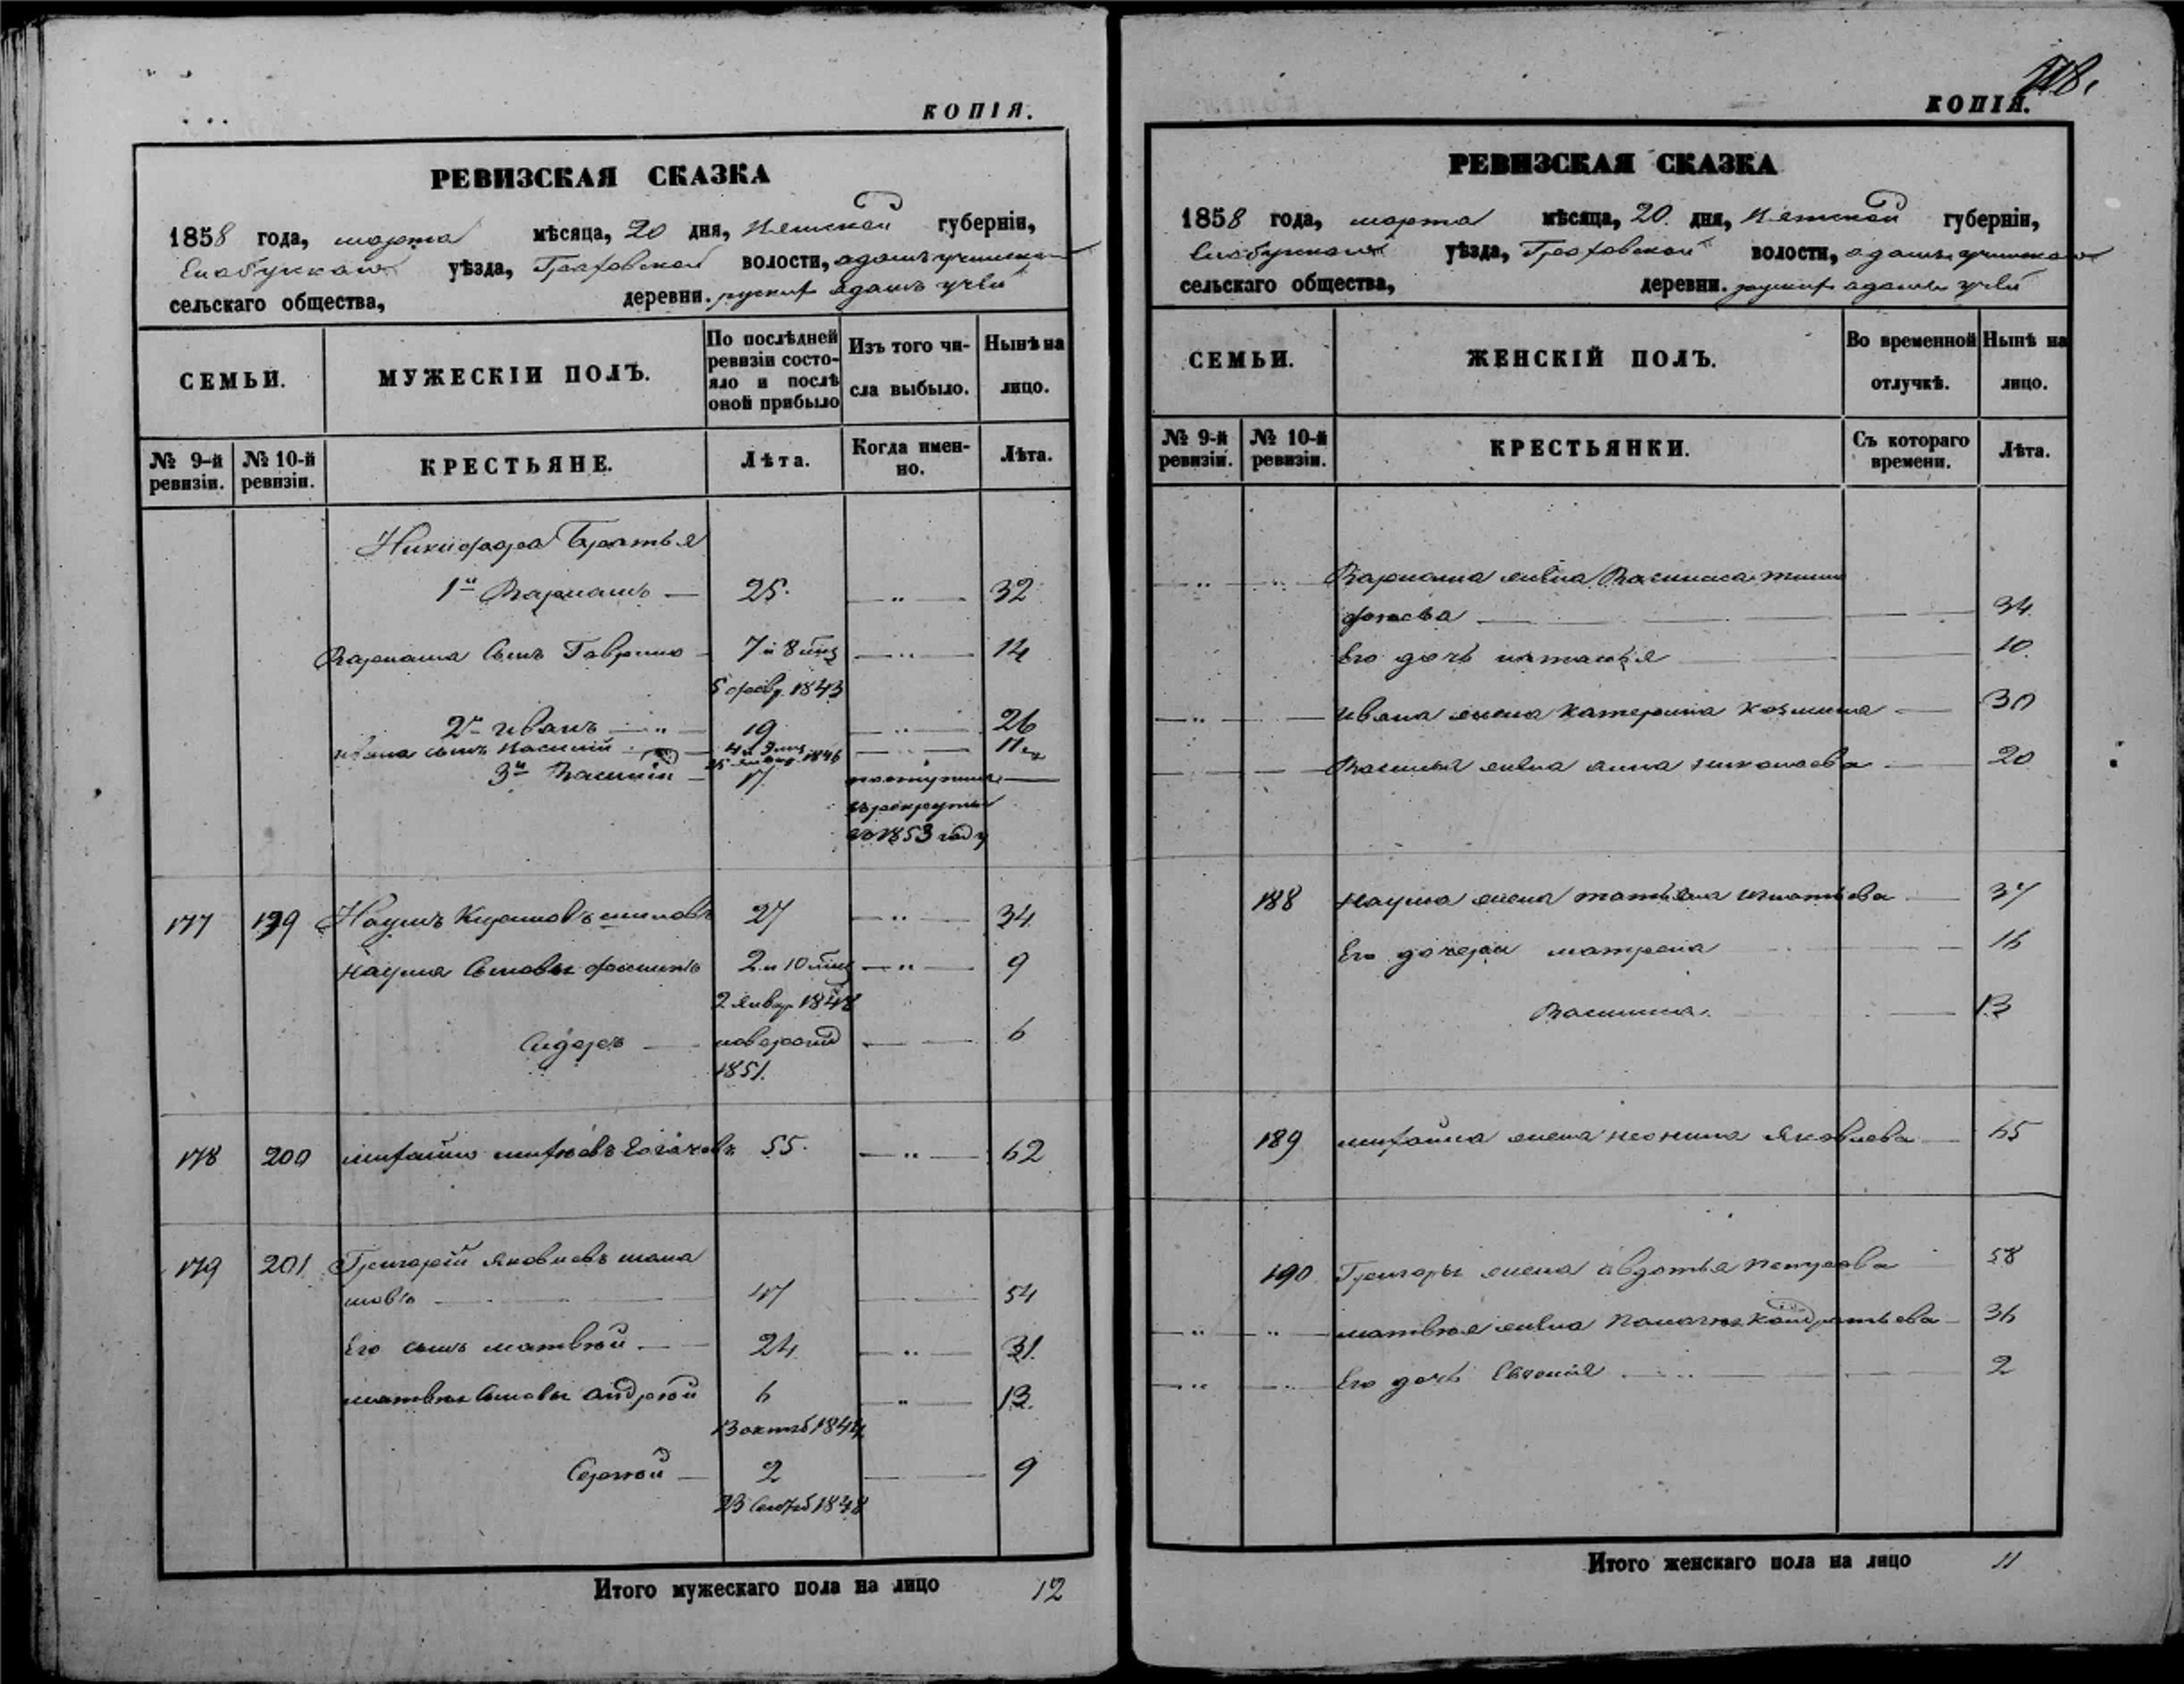 КОПІЯ.
РЕВИЗСКАЯ СКАЗКА
1858 года, марта мѣсяца, 20 дня, Вятской губерніи,
Елабужскаго уѣзда, Граховской волости,
сельскаго общества, деревни.
СЕМЬИ.
МУЖЕСКІЙ ПОЛЪ.
По послѣдней ревизіи состояло и послѣ оной прибыло
Изъ того числа выбыло.
Нынѣ на лицо.
№ 9-й ревизіи.
№ 10-й ревизіи.
КРЕСТЬЯНЕ.
Лѣта.
Когда именно.
Лѣта.
Никифора Братья
1й Варламъ 25. 32
Варлама сынъ Гаврило 7 и 8 мѣс 14
5 февр. 1843
2й Иванъ 19 26
Ивана сынъ Василій 11
3й Василій 17 поступилъ
въ рекруты
въ 1853 году
177 199 Наумъ 27 34
Наума Сыновья 2 и 10 мѣс 9
2 Январ 1848
Сидоръ 6
1851.
178 200 Михайло 55. 62
179 201 Григорій Яковлевъ
47 54
Его сынъ Матвѣй 24 31
Матвѣя Сыновья Андрей 6 13
13 октяб 1844
Сергѣй 2 9
23 Сентяб 1848
Итого мужескаго пола на лицо 12
КОПІЯ.
РЕВИЗСКАЯ СКАЗКА
1858 года, марта мѣсяца, 20 дня, Вятской губерніи,
Елабужскаго уѣзда, Граховской волости,
сельскаго общества, деревни.
СЕМЬИ.
ЖЕНСКІЙ ПОЛЪ.
Во временной отлучкѣ.
Нынѣ на лицо.
№ 9-й ревизіи.
№ 10-й ревизіи.
КРЕСТЬЯНКИ.
Съ котораго времени.
Лѣта.
Варлама жена Василиса Тимо
фѣева 34
Его дочь 10
Ивана жена Катерина Козмина 30
Василья жена Анна Николаева 20
188 Наума жена Татьяна Игнатьева 37
Его дочери Матрена 16
Василиса 13
189 Михайла жена Яковлева 65
190 Григорья жена Авдотья Петрова 58
Матвѣя жена Кондратьева 36
Его дочь 2
Итого женскаго пола на лицо 11